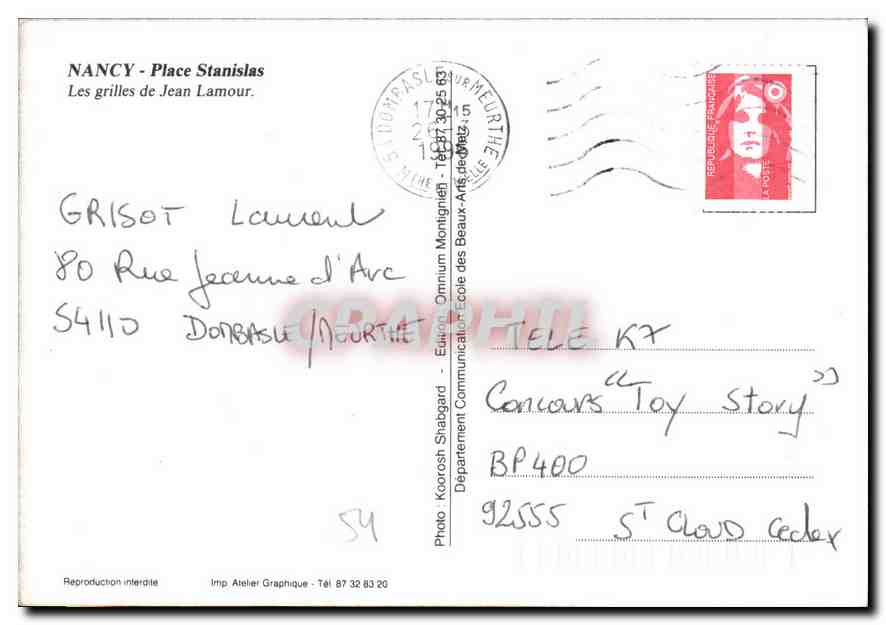 NANCY - Place Stanislas
Les grilles de Jean Lamour.
GRISOT Laurent
80 Rue Jeanne d'Arc
54110 DOMBASLE/MEURTHE
54
Reproduction interdite
Imp. Atelier Graphique - Tél 87 32 83 20
Photo : Koorosh Shabgard - Edition : Omnium Montignien - Tél 87 30 25 63
Département Communication Ecole des Beaux-Arts de Metz
54 DOMBASLE SUR MEURTHE
17 15
MTHE MOSELLE
REPUBLIQUE FRANÇAISE
LA POSTE
TELE K7
Concours "Toy Story"
BP 400
92555 ST CLOUD Cedex
CRAPHIL